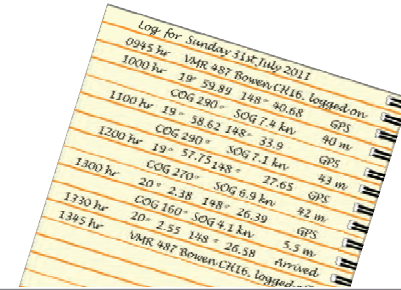 Log for Sunday 31st July 2011
0945 hr VMR 487 Bowen CH16, logged on
1000 hr 19° 59.89 148° 40.68 GPS
COG 290° SOG 7.4 kn 40 m
1100 hr 19° 58.62 148° 33.9 GPS
COG 290° SOG 7.1 kn 43 m
1200 hr 19° 57.75 148° 27.65 GPS
COG 270° SOG 6.9 kn 42 m
1300 hr 20° 2.38 148° 26.39 GPS
COG 160° SOG 4.1 kn 5.5 m
1330 hr 20° 2.55 148° 26.58 Arrived
1345 hr VMR 487 Bowen CH16, logged